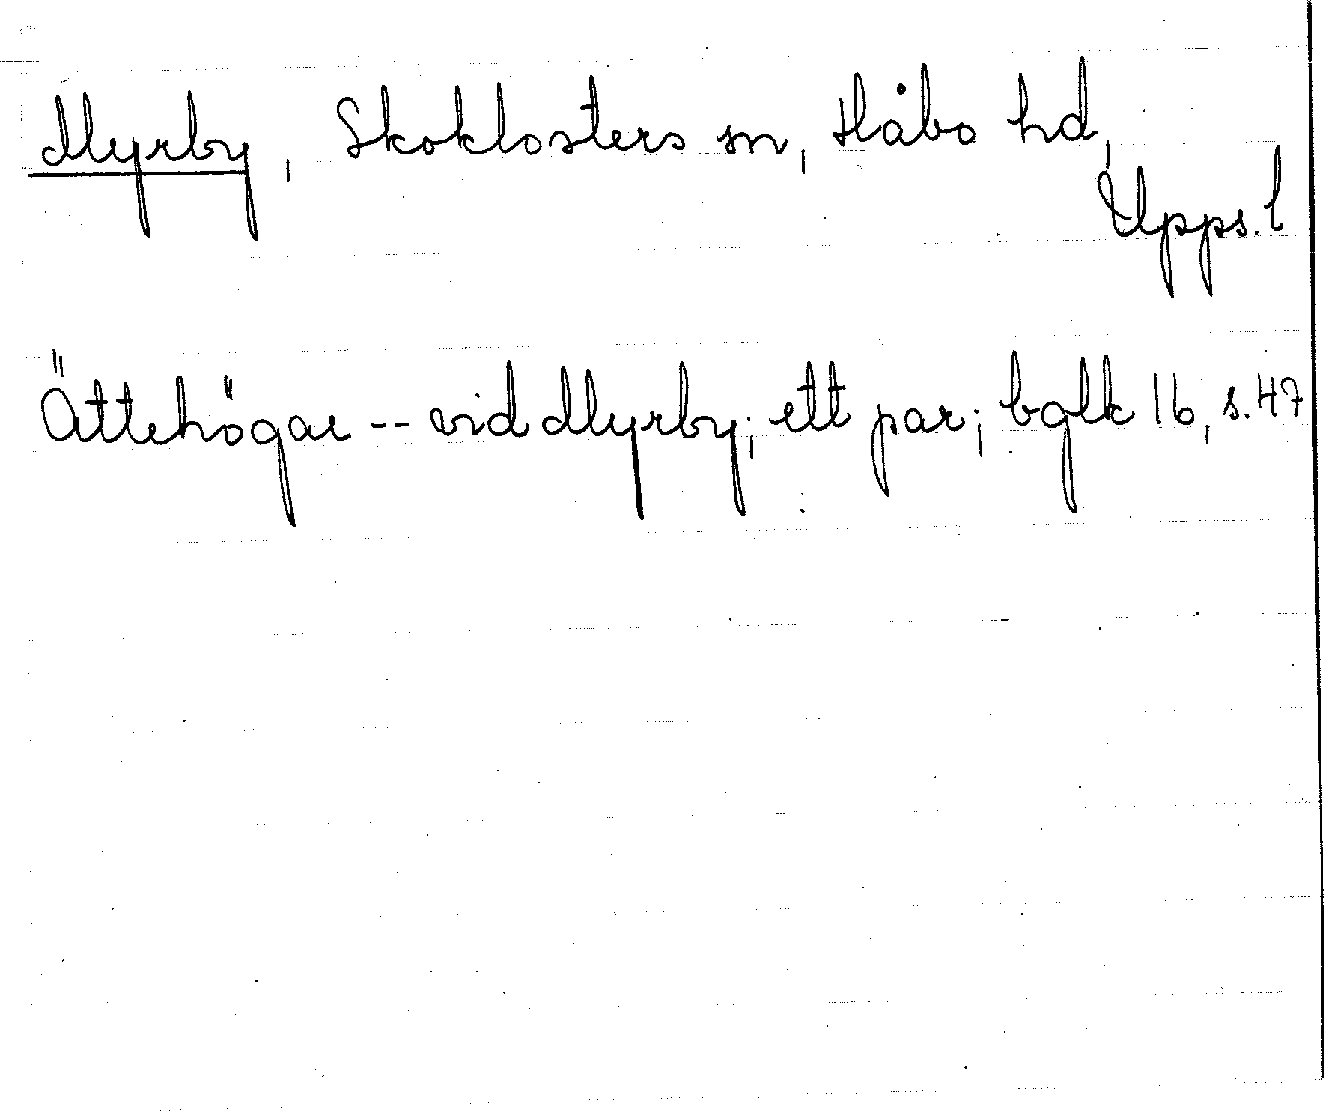 Myrby, Skoklosters sn, Håbo hd,
Upps. l
Ättehögar -- vid Myrby; ett par; bglk 16, s. 47